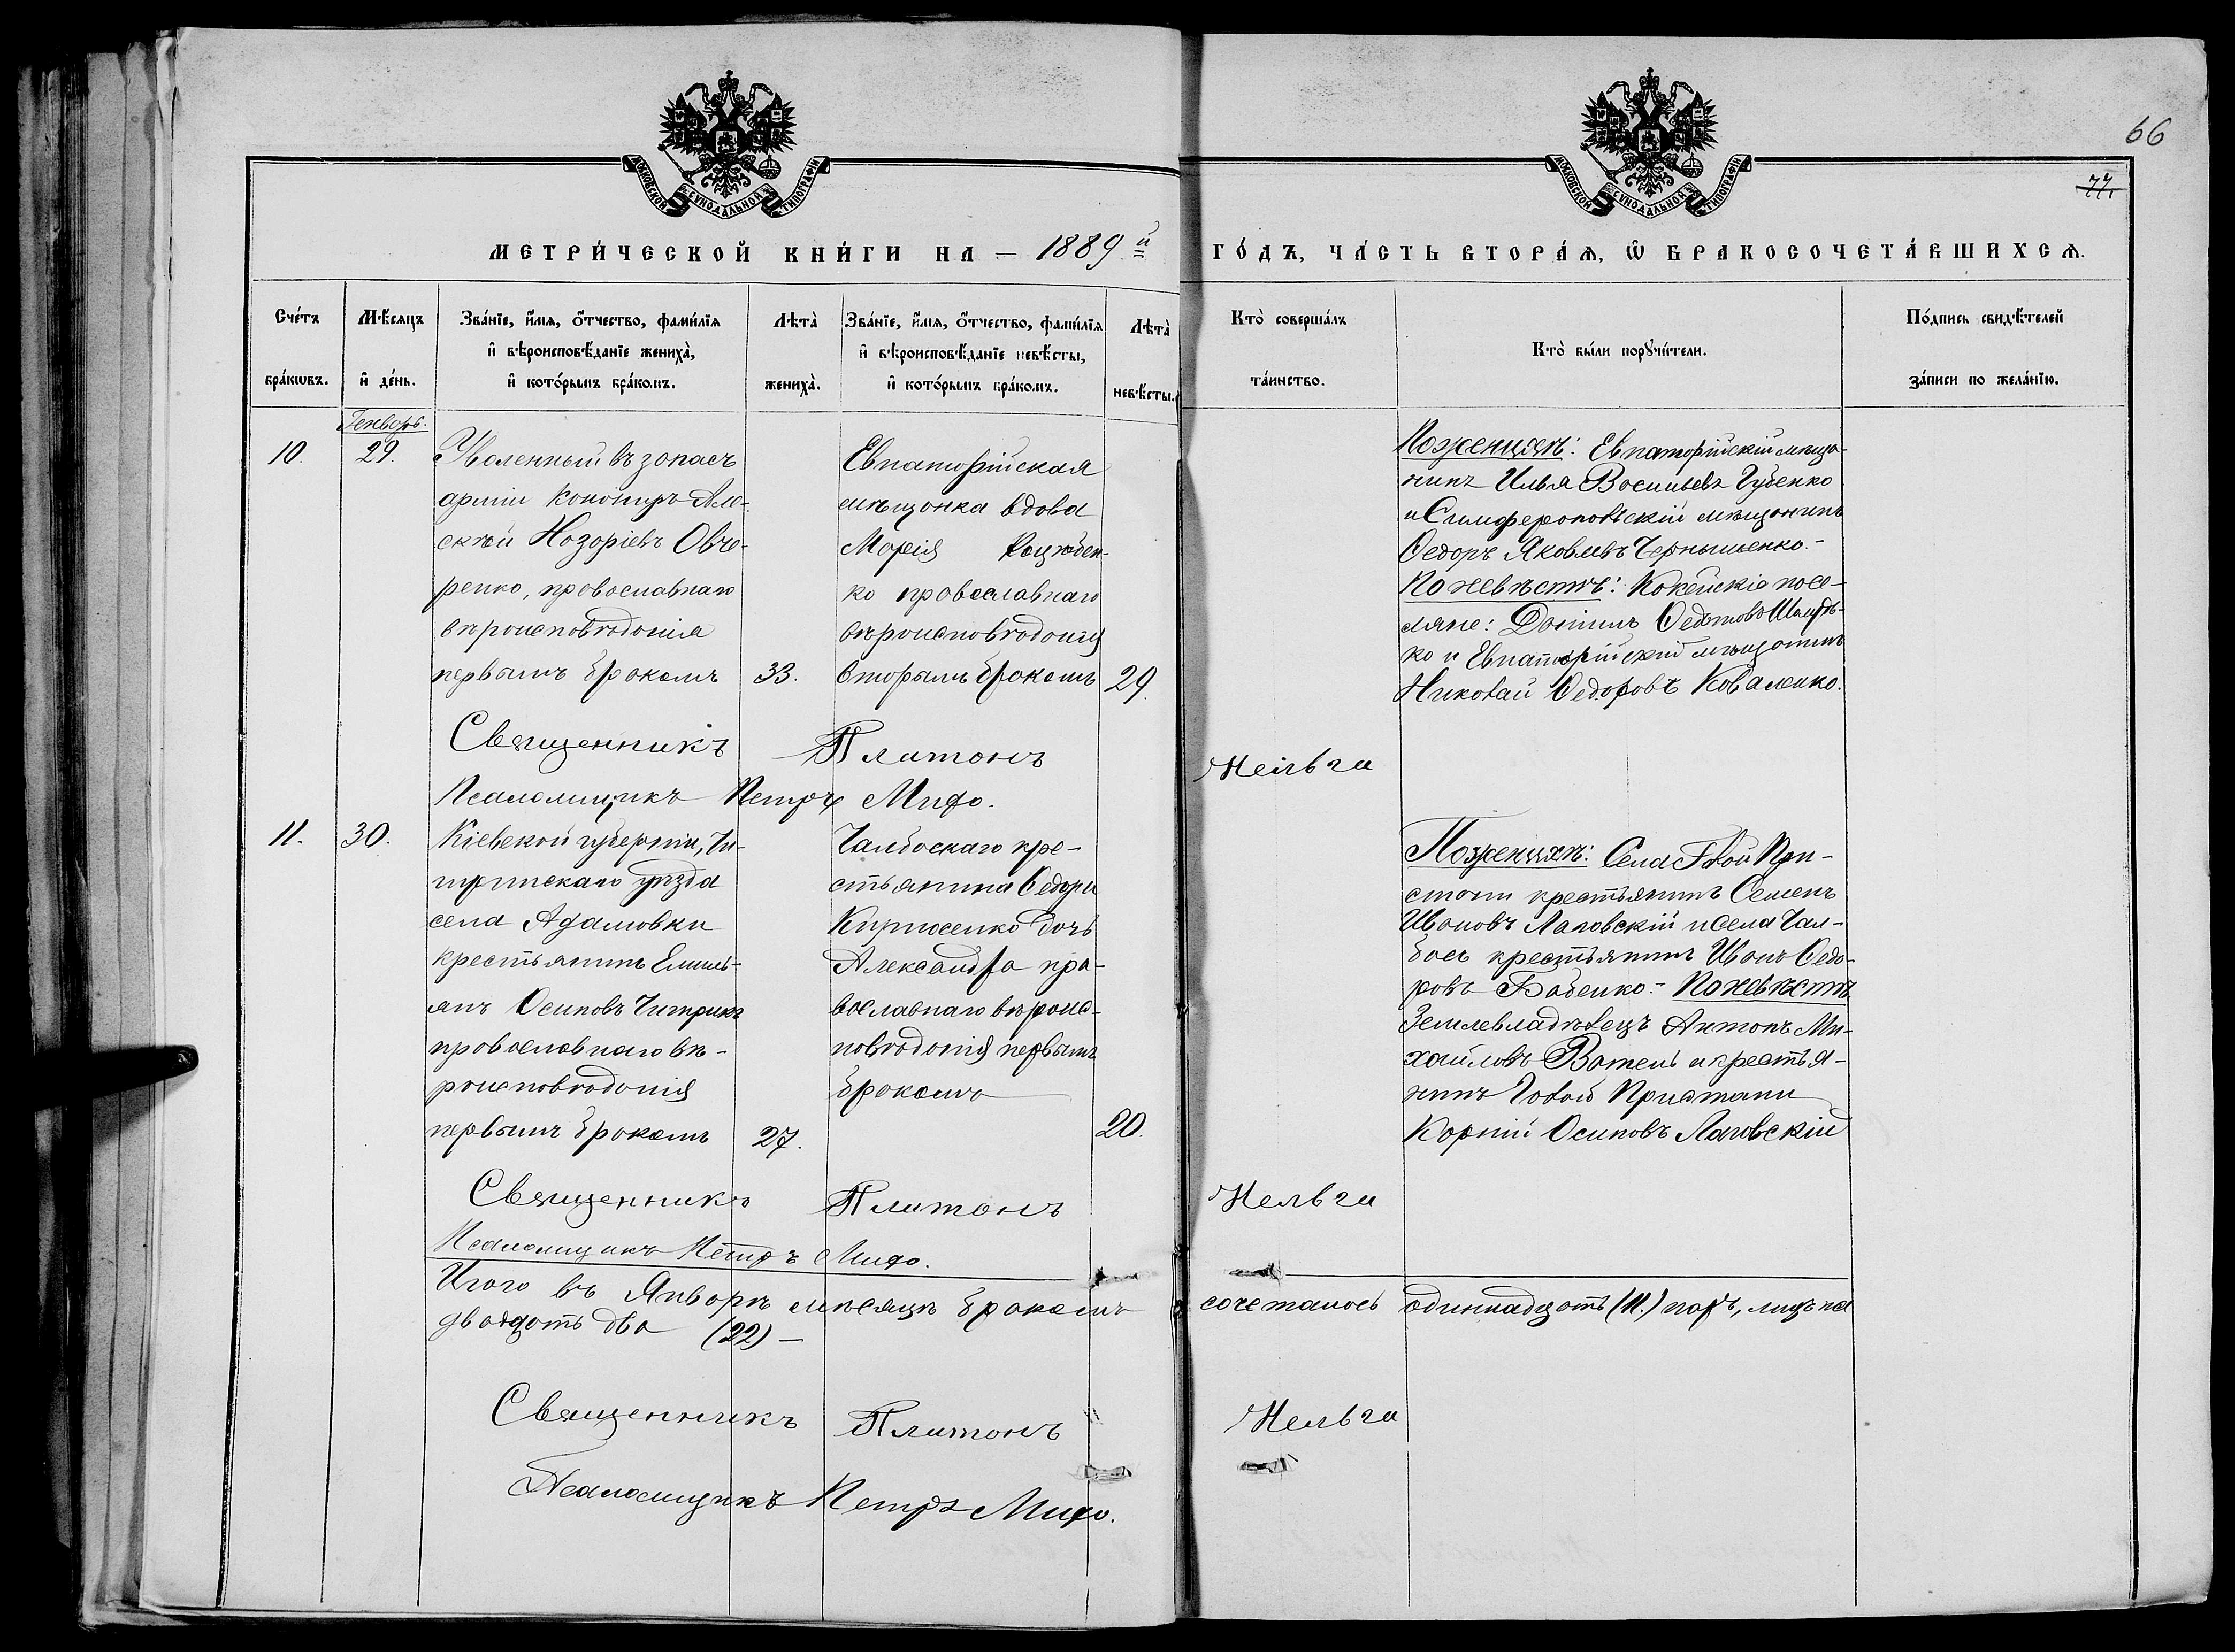 66
77.
МОСКОВСКОЙ СѴНОДАЛЬНОЙ ТИПОГРАФІИ
МОСКОВСКОЙ СѴНОДАЛЬНОЙ ТИПОГРАФІИ
МЕТРИ́ЧЕСКОЙ КНИ́ГИ НА — 1889й ГО́ДЪ, ЧА́СТЬ ВТОРА́Ѧ, Ѿ БРАКОСОЧЕТА́ВШИХСѦ.
Сче́тъ бра́кѡвъ.
Мѣ́сяцъ и де́нь.
Зва́нїе, и́мя, о́тчество, фами́лїя
и вѣроисповѣ́данїе жениха̀,
и кото́рымъ бра́комъ.
Лѣта̀ жениха̀.
Зва́нїе, и́мя, о́тчество, фами́лїя
и вѣроисповѣ́данїе невѣ́сты,
и кото́рымъ бра́комъ.
Лѣта̀ невѣ́сты.
Кто̀ соверша́лъ та́инство.
Кто̀ бы́ли порꙋчи́тели.
По́дпись свидѣ́телей
за́писи по жела́нїю.
Генварь.
10.
29.
Уволенный въ запасъ
арміи Канониръ Але-
ксѣй Назаріевъ Овча-
ренко, православнаго
вѣроисповѣданія
первымъ бракомъ
33.
Евпаторійская
мѣщанка вдова
Марія
ко православнаго
вѣроисповѣданія
вторымъ бракомъ
29.
По женихѣ: Евпаторійскій мѣща-
нинъ Илья Васильевъ Губенко
и Симферопольскій мѣщанинъ
Ѳедоръ Яковлевъ Чернышенко.-
По невѣстѣ: посе-
ляне: Даніилъ
ко и Евпаторійскій мѣщанинъ
Николай Ѳедоровъ Коваленко.
Священникъ Платонъ Мельга
Псаломщикъ Петръ
11.
30.
Кіевской губерніи, Чи-
гиринскаго уѣзда
села Адамовки
крестьянинъ Емель-
янъ Осиповъ
православнаго вѣ-
роисповѣданія
первымъ бракомъ
27.
Чалбаскаго кре-
стьянина Ѳедора
Кириченко дочь
Александра пра-
вославнаго вѣроис-
повѣданія первымъ
бракомъ
20.
По женихѣ: Села Голой При-
стани крестьянинъ Семенъ
Ивановъ Лаговскій и села Чал-
басъ крестьянинъ Иванъ Ѳедо-
ровъ Бабенко.- По невѣстѣ
Землевладѣлецъ Антонъ Ми-
хайловъ и крестья-
нинъ Голой Пристани
Корній Осиповъ Лаговскій
Священникъ Платонъ Мельга
Псаломщикъ Петръ
Итого въ Январѣ мѣсяцѣ бракомъ сочеталось одиннадцать (11.) паръ, лицъ на
двадцать два (22) —
Священникъ Платонъ Мельга
Псаломщикъ Петръ